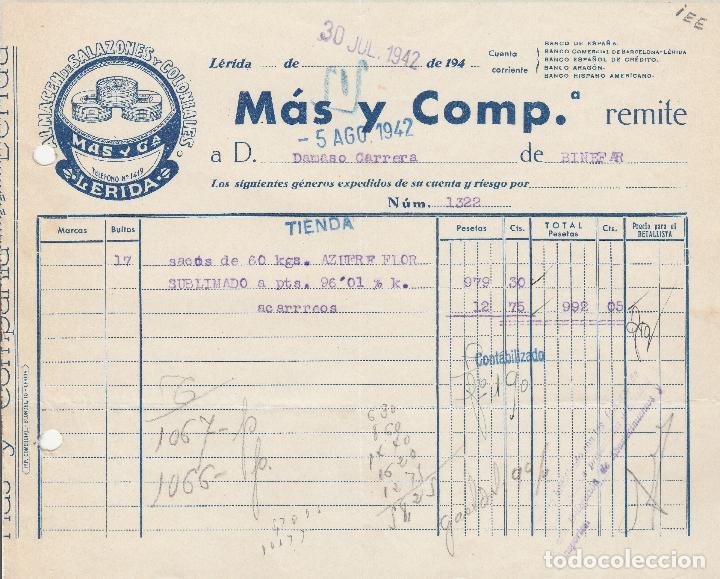 ALMACEN DE SALAZONES Y COLONIALES.
MÁS Y CA
TELEFONO Nº 1419
LERIDA
30 JUL. 1942
Lérida de de 194
Cuenta corriente
BANCO DE ESPAÑA.
BANCO COMERCIAL DE BARCELONA-LÉRIDA
BANCO ESPAÑOL DE CRÉDITO.
BANCO ARAGÓN.
BANCO HISPANO AMERICANO.
Más y Comp.ª remite
- 5 AGO. 1942
a D. Damaso Carrera de BINEFAR
Los siguientes géneros expedidos de su cuenta y riesgo por
Núm. 1322
Marcas Bultos TIENDA Pesetas Cts. TOTAL Pesetas Cts. Puesto para el DETALLISTA
17 sacos de 60 kgs. AZUFRE FLOR
SUBLIMADO a pts. 96'01 % k. 979 30
acarrreos 12 75 992 05
Contabilizado
190
630
1067-
1066-
todocoleccion
todocoleccion.net